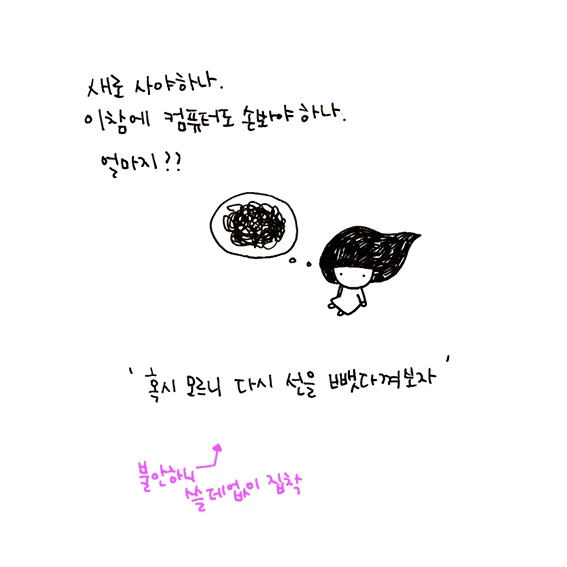 새로 사야하나.
이참에 컴퓨터도 손봐야 하나.
얼마지??
'혹시 모르니 다시 선을 뺏다껴보자'
불안하니
쓸데없이 집착